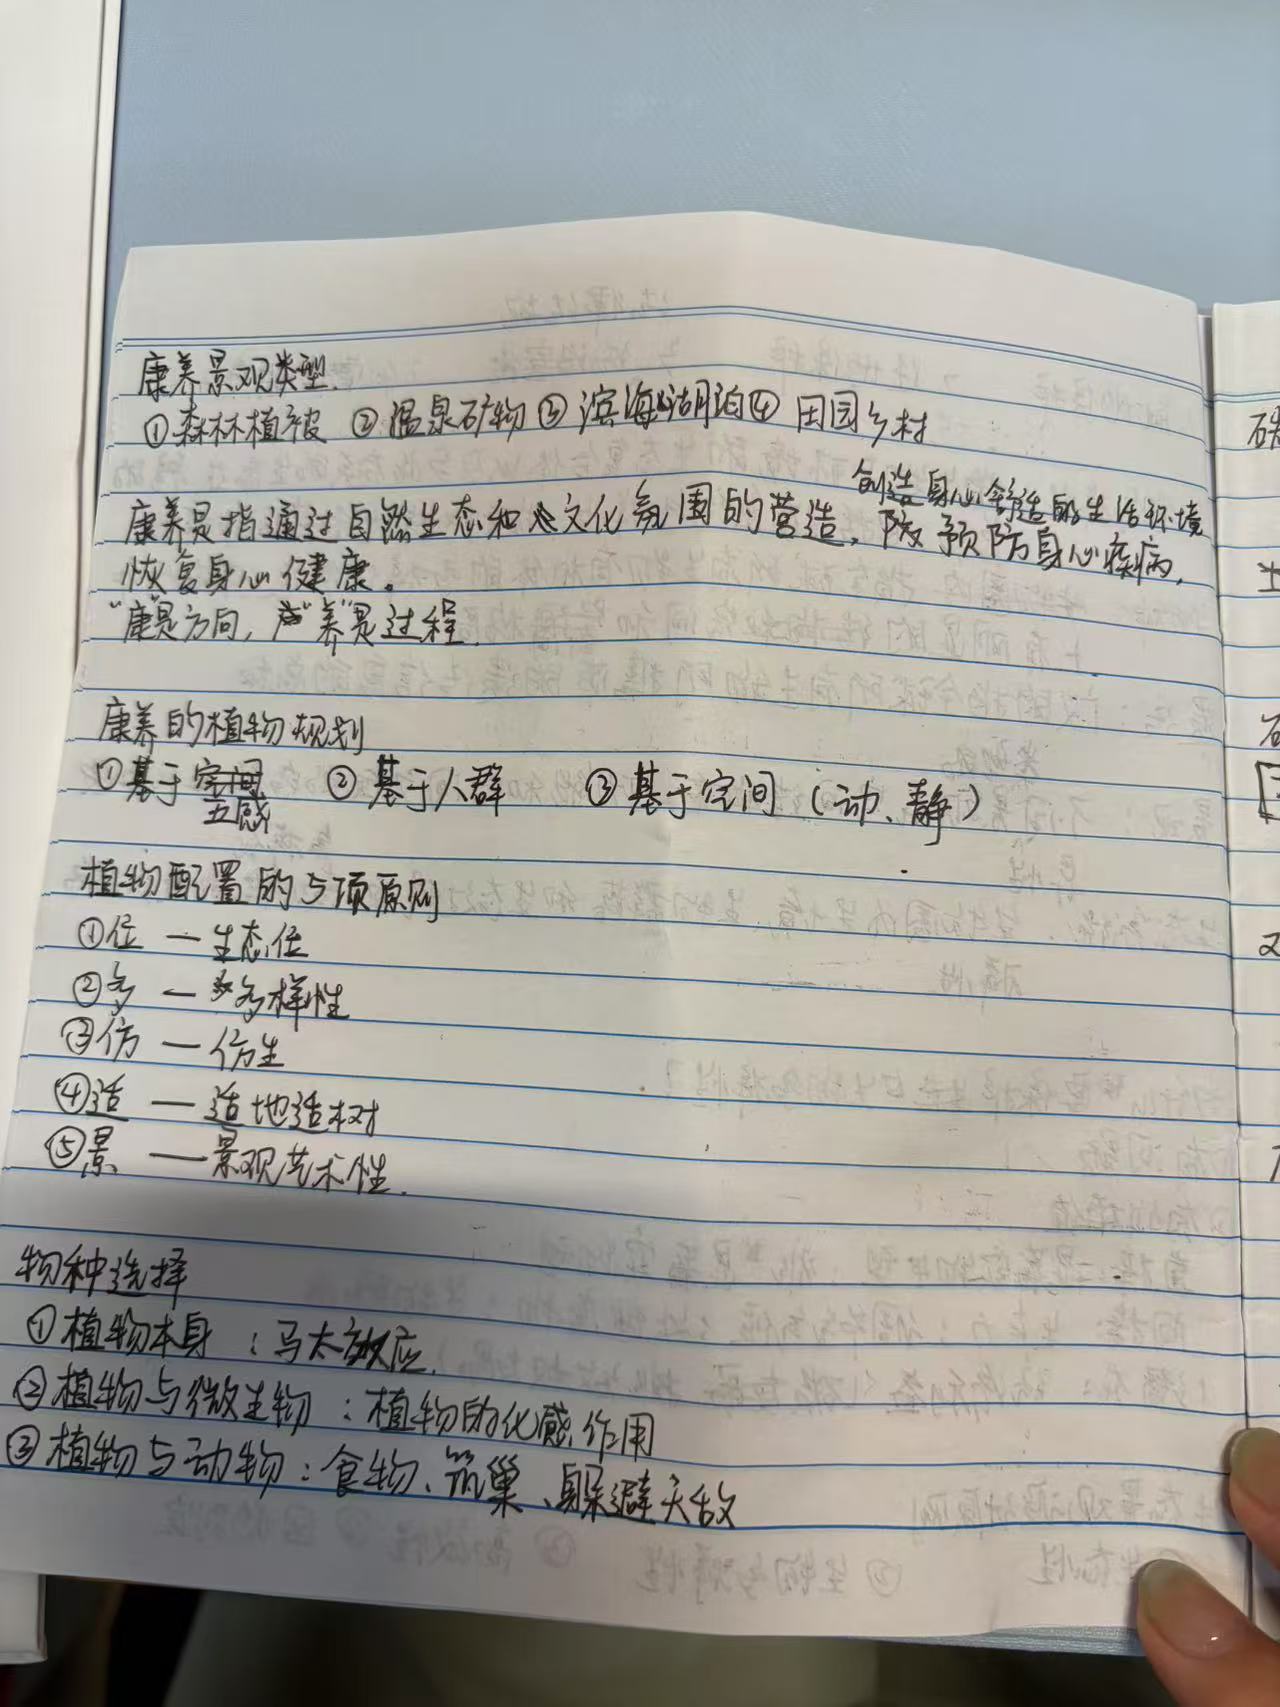 康养景观类型
①森林植被 ②温泉矿物 ③滨海湖泊 ④田园乡村
创造身心舒适的生活环境
康养是指通过自然生态和文化氛围的营造，预防身心疾病，
恢复身心健康。
"康"是方向，"养"是过程.
康养的植物规划
①基于五感 ②基于人群 ③基于空间（动、静）
植物配置的5项原则
①位 — 生态位
②多 — 多样性
③仿 — 仿生
④适 — 适地适树
⑤景 — 景观艺术性.
物种选择
①植物本身：马太效应.
②植物与微生物：植物的化感作用
③植物与动物：食物、筑巢、躲避天敌